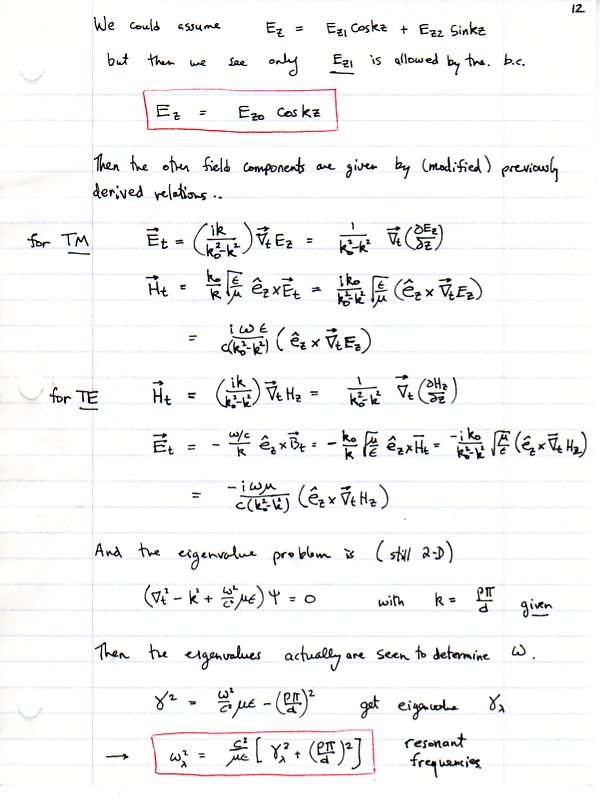 12.
We could assume E_z = E_z1 Coskz + E_z2 Sinkz
but then we see only E_z1 is allowed by the. b.c.
E_z = E_z0 coskz
Then the other field components are given by (modified) previously
derived relations..
for TM E⃗_t = (ik/(k_0²-k²)) ∇⃗_t E_z = 1/(k_0²-k²) ∇⃗_t (∂E_z/∂z)
H⃗_t = k_0/k √(ε/μ) ê_z x E⃗_t = ik_0/(k_0²-k²) √(ε/μ) (ê_z x ∇⃗_t E_z)
= iωε/(c(k_0²-k²)) (ê_z x ∇⃗_t E_z)
for TE H⃗_t = (ik/(k_0²-k²)) ∇⃗_t H_z = 1/(k_0²-k²) ∇⃗_t (∂H_z/∂z)
E⃗_t = - (ω/c)/k ê_z x B⃗_t = - k_0/k √(μ/ε) ê_z x H⃗_t = -ik_0/(k_0²-k²) √(μ/ε) (ê_z x ∇⃗_t H_z)
= -iωμ/(c(k_0²-k²)) (ê_z x ∇⃗_t H_z)
And the eigenvalue problem is (still 2-D)
(∇_t² - k² + ω²/c² με) Ψ = 0 with k = pπ/d given
Then the eigenvalues actually are seen to determine ω.
γ² = ω²/c² με - (pπ/d)² get eigenvalue γ_λ
→ ω_λ² = c²/με [γ_λ² + (pπ/d)²] resonant
frequencies